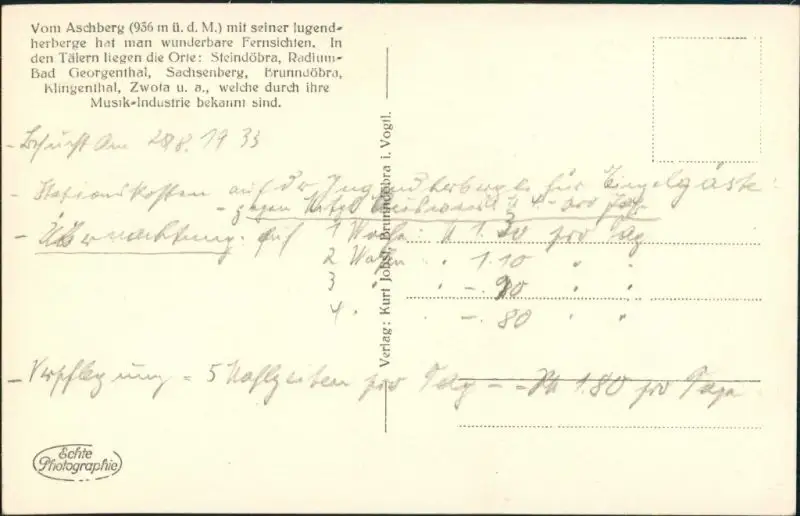 Vom Aschberg (936 m ü. d. M.) mit seiner Jugend-
herberge hat man wunderbare Fernsichten. In
den Tälern liegen die Orte: Steindöbra, Radium-
Bad Georgenthal, Sachsenberg, Brunndöbra,
Klingenthal, Zwota u. a., welche durch ihre
Musik-Industrie bekannt sind.
- Besucht am 28/8. 1933
- Stationskosten auf der Jugendherberge für Einzelgäste:
- gegen pro Tag
- Übernachtung. auf 1 Woche: M 1.30 pro Tag
2 Wochen " 1.10 " "
3 " " -.90 " "
4. " -.80 " "
- Verpflegung = 5 Mahlzeiten pro Tag - = M 1.80 pro Tage
Verlag: Kurt Jobst, Brunndöbra i. Vogtl.
Echte
Photographie